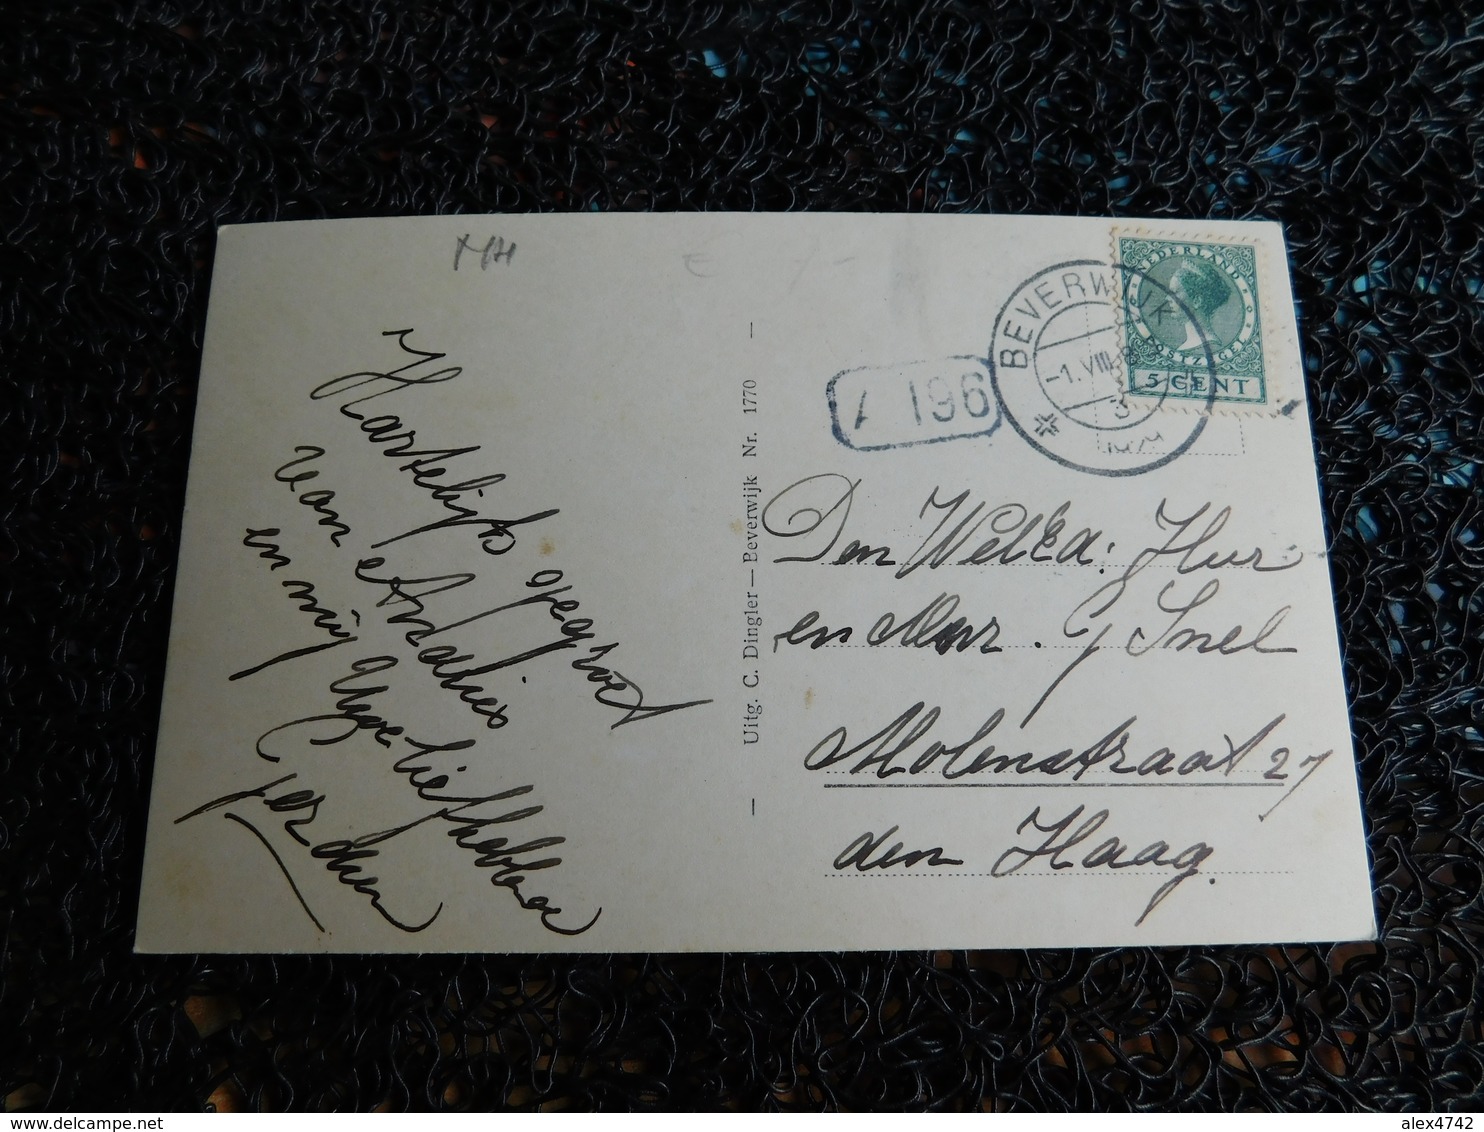 MH
Hartelijk gegroet
van Andries
en mij Uwe liefhebbende
Gerdien
Uitg. C. Dingler — Beverwijk Nr. 1770
NEDERLAND
POSTZEGEL
5 CENT
BEVERWIJK
-1.VIII
3
1929
A 196
Den WelEd: Heer
en Mevr. G Snel
Molenstraat 27
den Haag.
alex4742